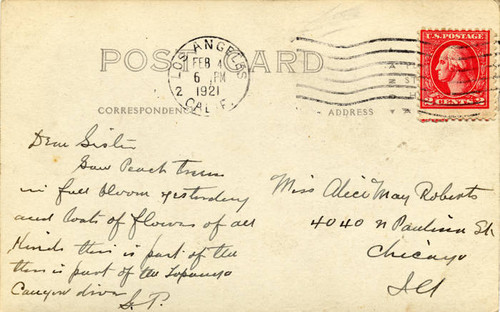 POST CARD
LOS ANGELES
FEB 4
6 PM
2 1921
CALIF.
U.S. POSTAGE
2 CENTS 2
CORRESPONDENCE
ADDRESS
Dear Sister
Saw Peach trees
in full bloom yesterday
and loats of flowers of all
Kinds this is part of the
this is part of the Topanga
Canyon drive
Miss Alice May Roberts
4040 N Paulina St
Chicago
Ill